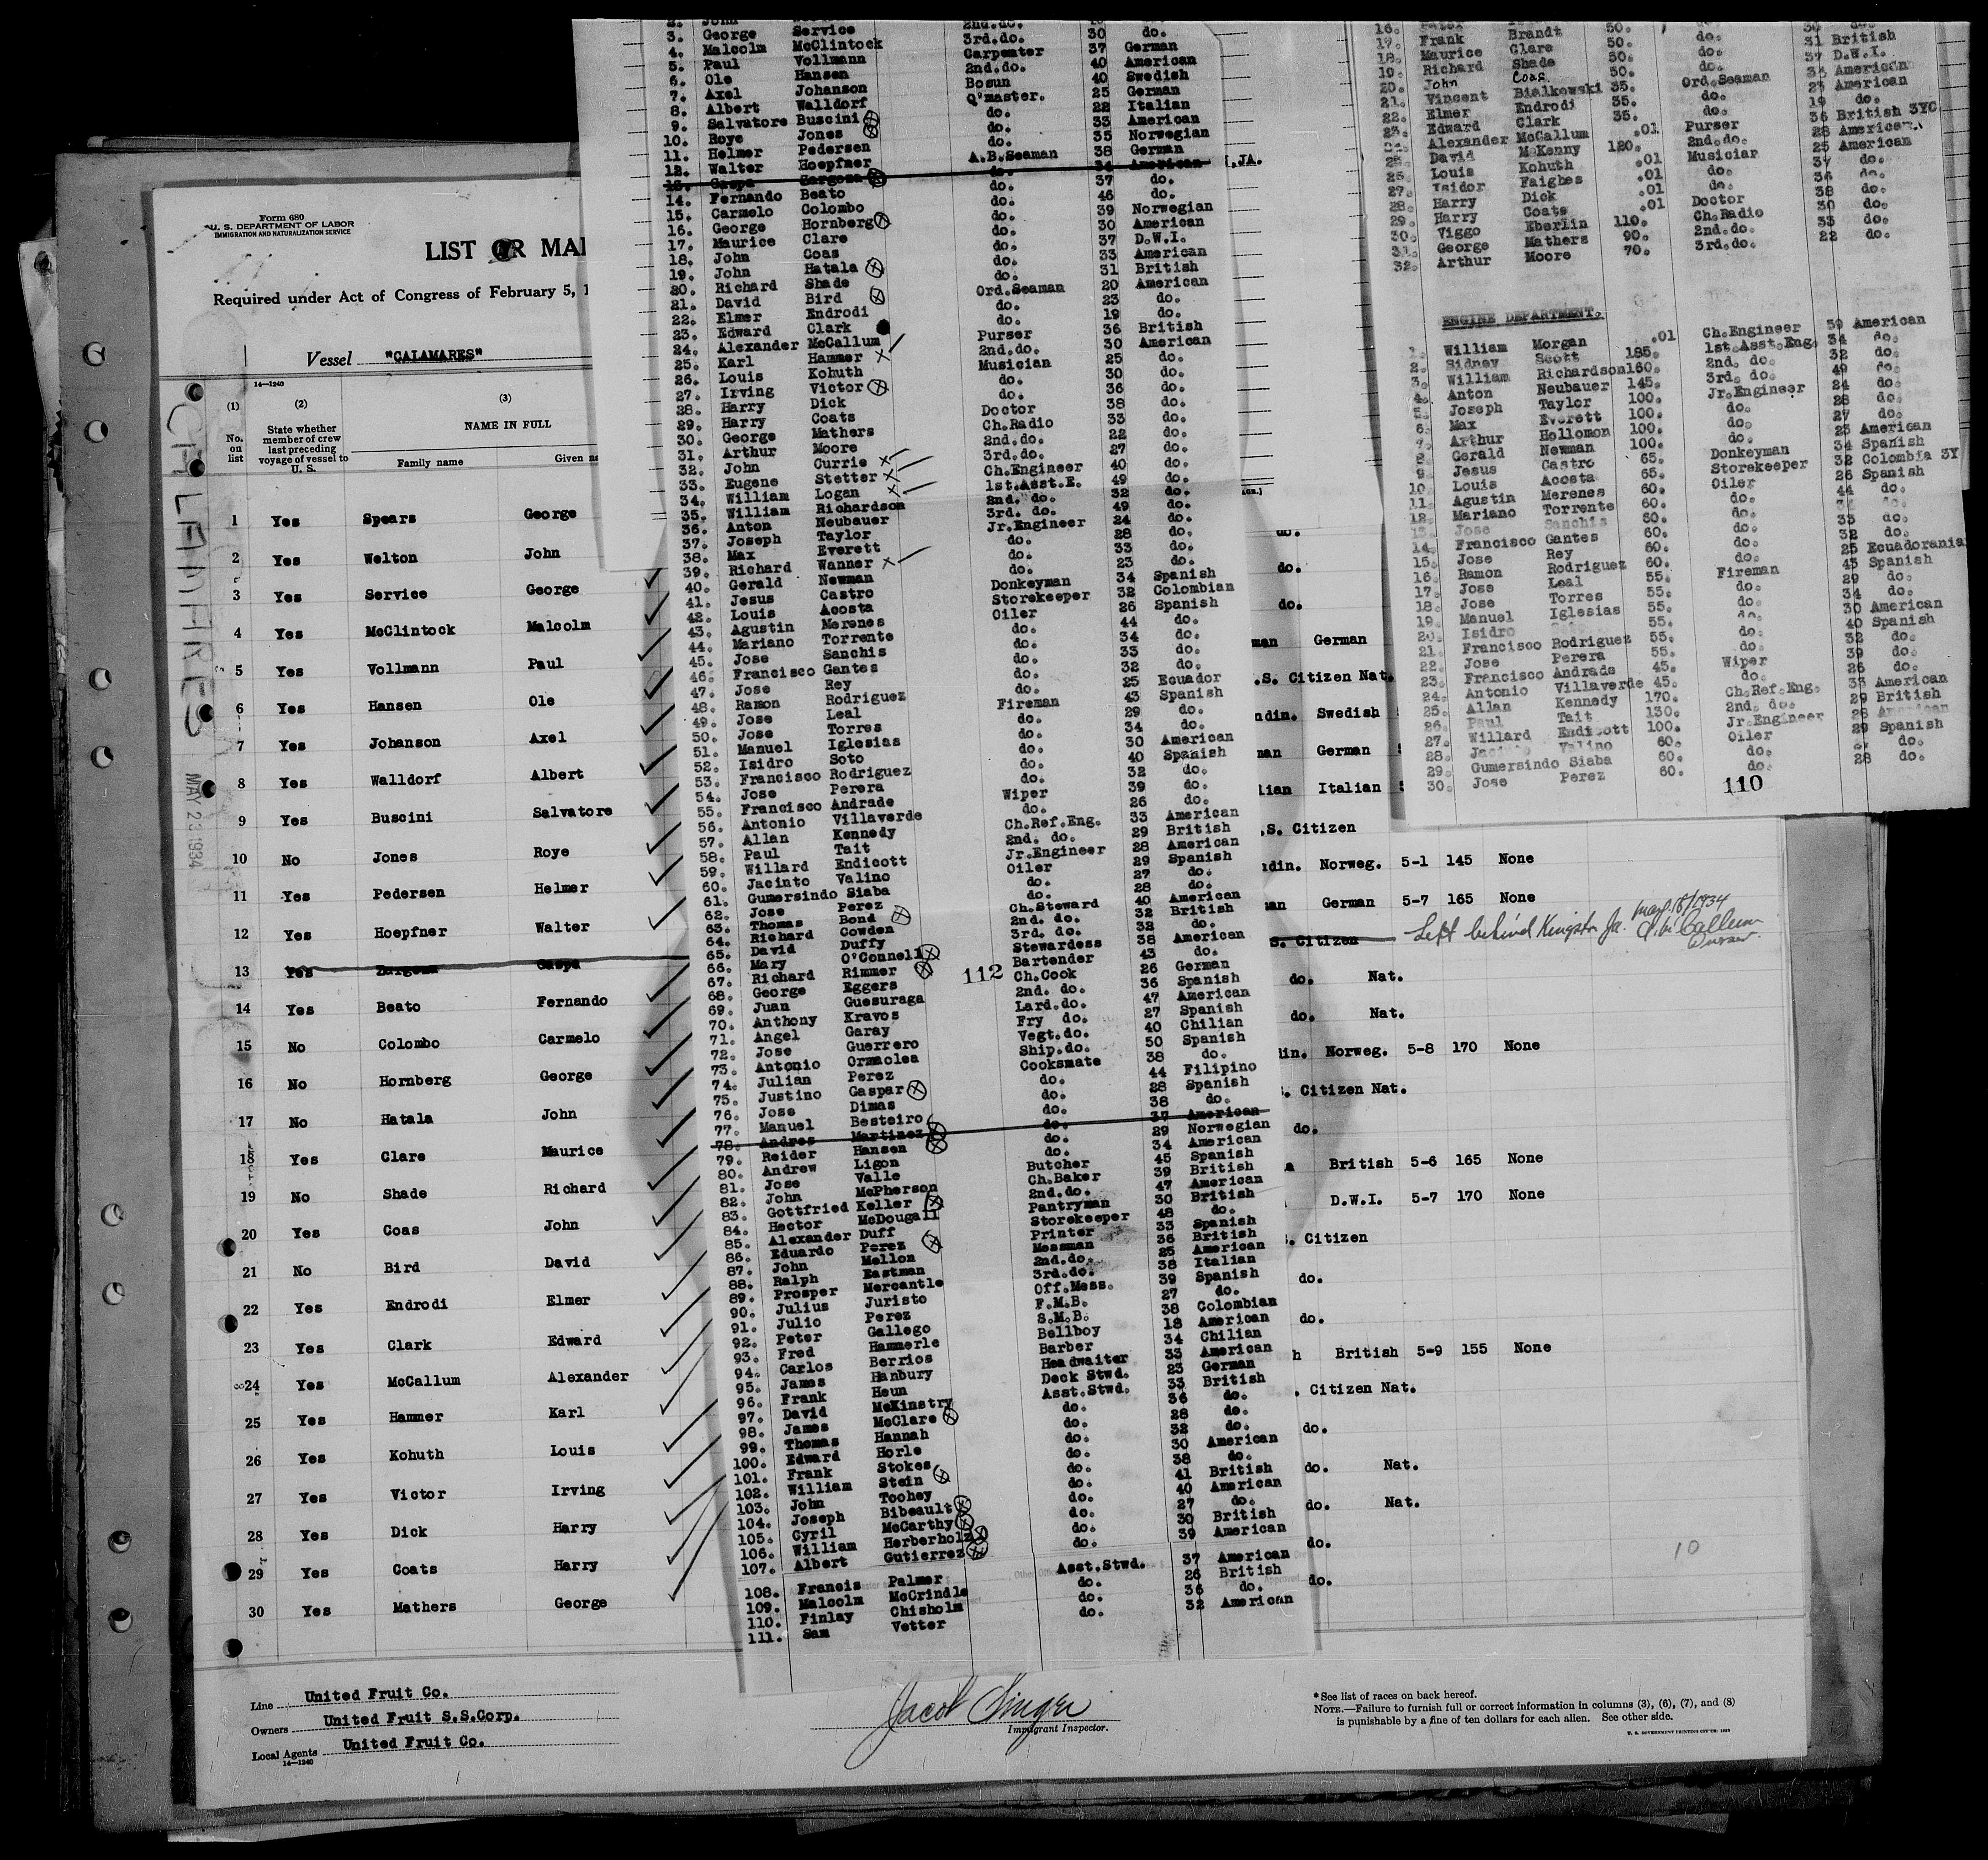 Form 680
U. S. DEPARTMENT OF LABOR
IMMIGRATION AND NATURALIZATION SERVICE
LIST OR MA
Required under Act of Congress of February 5, 1
Vessel "CALAMARES"
14—1240
(1) (2) (3)
No. on list
State whether member of crew last preceding voyage of vessel to U. S.
NAME IN FULL
Family name Given na
CALAMARES
MAY 23 1934
1 Yes Spears George
2 Yes Welton John
3 Yes Service George
4 Yes McClintock Malcolm
5 Yes Vollmann Paul
6 Yes Hansen Ole
7 Yes Johanson Axel
8 Yes Walldorf Albert
9 Yes Buscini Salvatore
10 No Jones Roye
11 Yes Pedersen Helmer
12 Yes Hoepfner Walter
13 Yes Zargoza Gaspa
14 Yes Beato Fernando
15 No Colombo Carmelo
16 No Hornberg George
17 No Hatala John
18 Yes Clare Maurice
19 No Shade Richard
20 Yes Coas John
21 No Bird David
22 Yes Endrodi Elmer
23 Yes Clark Edward
24 Yes McCallum Alexander
25 Yes Hammer Karl
26 Yes Kohuth Louis
27 Yes Victor Irving
28 Yes Dick Harry
29 Yes Coats Harry
30 Yes Mathers George
Line United Fruit Co.
Owners United Fruit S.S.Corp.
Local Agents United Fruit Co.
14—1240
3. George Service
4. Malcolm McClintock
5. Paul Vollmann
6. Ole Hansen
7. Axel Johanson
8. Albert Walldorf
9. Salvatore Buscini
10. Roye Jones
11. Helmer Pedersen
12. Walter Hoepfner
13. Gaspa Zargoza
14. Fernando Beato
15. Carmelo Colombo
16. George Hornberg
17. Maurice Clare
18. John Coas
19. John Hatala
20. Richard Shade
21. David Bird
22. Elmer Endrodi
23. Edward Clark
24. Alexander McCallum
25. Karl Hammer
26. Louis Kohuth
27. Irving Victor
28. Harry Dick
29. Harry Coats
30. George Mathers
31. Arthur Moore
32. John Currie
33. Eugene Stetter
34. William Logan
35. William Richardson
36. Anton Neubauer
37. Joseph Taylor
38. Max Everett
39. Richard Wanner
40. Gerald Newman
41. Jesus Castro
42. Louis Acosta
43. Agustin Merenes
44. Mariano Torrente
45. Jose Sanchis
46. Francisco Gantes
47. Jose Rey
48. Ramon Rodriguez
49. Jose Leal
50. Jose Torres
51. Manuel Iglesias
52. Isidro Soto
53. Francisco Rodriguez
54. Jose Perera
55. Francisco Andrade
56. Antonio Villaverde
57. Allan Kennedy
58. Paul Tait
59. Willard Endicott
60. Jacinto Valino
61. Gumersindo Siaba
62. Jose Perez
63. Thomas Bond
64. Richard Cowden
65. David Duffy
66. Mary O'Connell
67. Richard Rimmer
68. George Eggers
69. Juan Guesuraga
70. Anthony Kravos
71. Angel Garay
72. Jose Guerrero
73. Antonio Ormaolea
74. Julian Perez
75. Justino Gaspar
76. Jose Dimas
77. Manuel Besteiro
78. Andres Martinez
79. Reider Hansen
80. Andrew Ligon
81. Jose Valle
82. John McPherson
83. Gottfried Keller
84. Hector McDougall
85. Alexander Duff
86. Eduardo Perez
87. John Mellon
88. Ralph Eastman
89. Prosper Mercantle
90. Julius Juristo
91. Julio Perez
92. Peter Gallego
93. Fred Hammerle
94. Carlos Berrios
95. James Hanbury
96. Frank Heun
97. David McKinstry
98. James McClare
99. Thomas Hannah
100. Edward Horle
101. Frank Stokes
102. William Stein
103. John Toohey
104. Joseph Bibeault
105. Cyril McCarthy
106. William Herberholz
107. Albert Gutierrez
108. Francis Palmer
109. Malcolm McCrindle
110. Finlay Chisholm
111. Sam Vetter
2nd.do.
3rd.do.
Carpenter
2nd.do.
Bosun
Q'master.
do.
do.
do.
A.B.Seaman
do.
do.
do.
do.
do.
do.
do.
do.
Ord.Seaman
do.
do.
Purser
2nd.do.
Musician
do.
do.
Doctor
Ch.Radio
2nd.do.
3rd.do.
Ch.Engineer
1st.Asst.E.
2nd. do.
3rd. do.
Jr.Engineer
do.
do.
do.
Donkeyman
Storekeeper
Oiler
do.
do.
do.
do.
do.
Fireman
do.
do.
do.
do.
do.
Wiper
do.
Ch.Ref.Eng.
2nd. do.
Jr.Engineer
Oiler
do.
do.
Ch.Steward
2nd. do.
3rd. do.
Stewardess
Bartender
112 Ch.Cook
2nd. do.
Lard.do.
Fry do.
Vegt.do.
Ship.do.
Cooksmate
do.
do.
do.
do.
do.
do.
Butcher
Ch.Baker
2nd.do.
Pantryman
Storekeeper
Printer
Messman
2nd.do.
3rd.do.
Off.Mess.
F.M.B.
S.M.B.
Bellboy
Barber
Headwaiter
Deck Stwd.
Asst.Stwd.
do.
do.
do.
do.
do.
do.
do.
do.
do.
do.
Asst.Stwd.
do.
do.
do.
30 do.
37 German
40 American
40 Swedish
25 German
22 Italian
33 American
35 Norwegian
38 German
34 American
37 do.
46 do.
39 Norwegian
30 American
37 D.W.I.
33 American
31 British
20 American
23 do.
19 do.
36 British
30 American
25 do.
30 do.
36 do.
38 do.
33 do.
22 do.
27 do.
40 do.
49 do.
32 do.
49 do.
24 do.
28 do.
33 do.
23 do.
34 Spanish
32 Colombian
26 Spanish
44 do.
34 do.
33 do.
32 do.
25 Ecuador
43 Spanish
29 do.
34 do.
30 American
40 Spanish
32 do.
39 do.
26 do.
33 American
29 British
28 American
29 Spanish
27 do.
28 do.
40 American
32 British
32 do.
38 American
43 do.
26 German
36 Spanish
47 American
27 Spanish
40 Chilian
50 Spanish
38 do.
44 Filipino
28 Spanish
38 do.
37 American
29 Norwegian
34 American
45 Spanish
39 British
47 American
30 British
48 do.
33 Spanish
36 British
25 American
38 Italian
39 Spanish
27 do.
38 Colombian
18 American
34 Chilian
33 American
23 German
33 British
36 do.
28 do.
32 do.
30 American
38 do.
41 British
40 American
27 do.
30 British
39 American
37 American
26 British
36 do.
32 American
JA.
17. Frank Brandt 50.
18. Maurice Clare 50.
19. Richard Shade 50.
20. John Coas 50.
21. Vincent Bialkowski 35.
22. Elmer Endrodi 35.
23. Edward Clark 35.
Alexander McCallum .01
25. David McKenny 120.
Louis Kohuth .01
27. Isidor Faighes .01
28. Harry Dick .01
29. Harry Coats .01
30. Viggo Eberlin 110.
31. George Mathers 90.
32. Arthur Moore 70.
do.
do.
do.
Ord.Seaman
do.
do.
Purser
2nd.do.
Musician
do.
do.
Doctor
Ch.Radio
2nd.do.
3rd.do.
31 British
37 D.W.I.
33 American
23 American
19 do.
36 British 3YC
28 American
25 American
37 do.
34 do.
38 do.
30 do.
33 do.
22 do.
ENGINE DEPARTMENT.
1. William Morgan .01
2. Sidney Scott 185.
3. William Richardson 160.
4. Anton Neubauer 145.
5. Joseph Taylor 100.
6. Max Everett 100.
7. Arthur Hollomon 100.
8. Gerald Newman 100.
9. Jesus Castro 65.
10. Louis Acosta 65.
11. Agustin Merenes 60.
12. Mariano Torrente 60.
13. Jose Sanchis 60.
14. Francisco Gantes 60.
15. Jose Rey 60.
16. Ramon Rodriguez 60.
17. Jose Leal 55.
18. Jose Torres 55.
19. Manuel Iglesias 55.
20. Isidro 55.
21. Francisco Rodriguez 55.
22. Jose Perera 55.
23. Francisco Andrade 45.
24. Antonio Villaverde 45.
25. Allan Kennedy 170.
26. Paul Tait 130.
27. Willard Endicott 100.
28. Jacinto Valino 60.
29. Gumersindo Siaba 60.
30. Jose Perez 60.
Ch.Engineer
1st.Asst.Eng.
2nd. do.
3rd. do.
Jr.Engineer
do.
do.
do.
Donkeyman
Storekeeper
Oiler
do.
do.
do.
do.
do.
Fireman
do.
do.
do.
do.
do.
Wiper
do.
Ch.Ref.Eng.
2nd. do.
Jr.Engineer
Oiler
do.
do.
110
59 American
34 do.
32 do.
49 do.
24 do.
28 do.
27 do.
23 American
34 Spanish
32 Colombia 3Y
26 Spanish
44 do.
33 do.
32 do.
25 Ecuadorania
43 Spanish
29 do.
34 do.
30 American
40 Spanish
32 do.
39 do.
26 do.
33 American
29 British
28 American
29 Spanish
27 do.
28 do.
do.
do.
do.
man German
.S. Citizen Nat.
ndin. Swedish
man German
lian Italian
.S. Citizen
ndin. Norweg. 5-1 145 None
man German 5-7 165 None
S. Citizen Left behind Kingston Ja. May 18/1934
A. McCallum
Purser
do. Nat.
do. Nat.
din. Norweg. 5-8 170 None
. Citizen Nat.
do.
British 5-6 165 None
D.W.I. 5-7 170 None
. Citizen
do.
do.
h British 5-9 155 None
. Citizen Nat.
do.
do. Nat.
do. Nat.
do.
do.
10
Jacob Singer
Immigrant Inspector.
* See list of races on back hereof.
NOTE.—Failure to furnish full or correct information in columns (3), (6), (7), and (8)
is punishable by a fine of ten dollars for each alien. See other side.